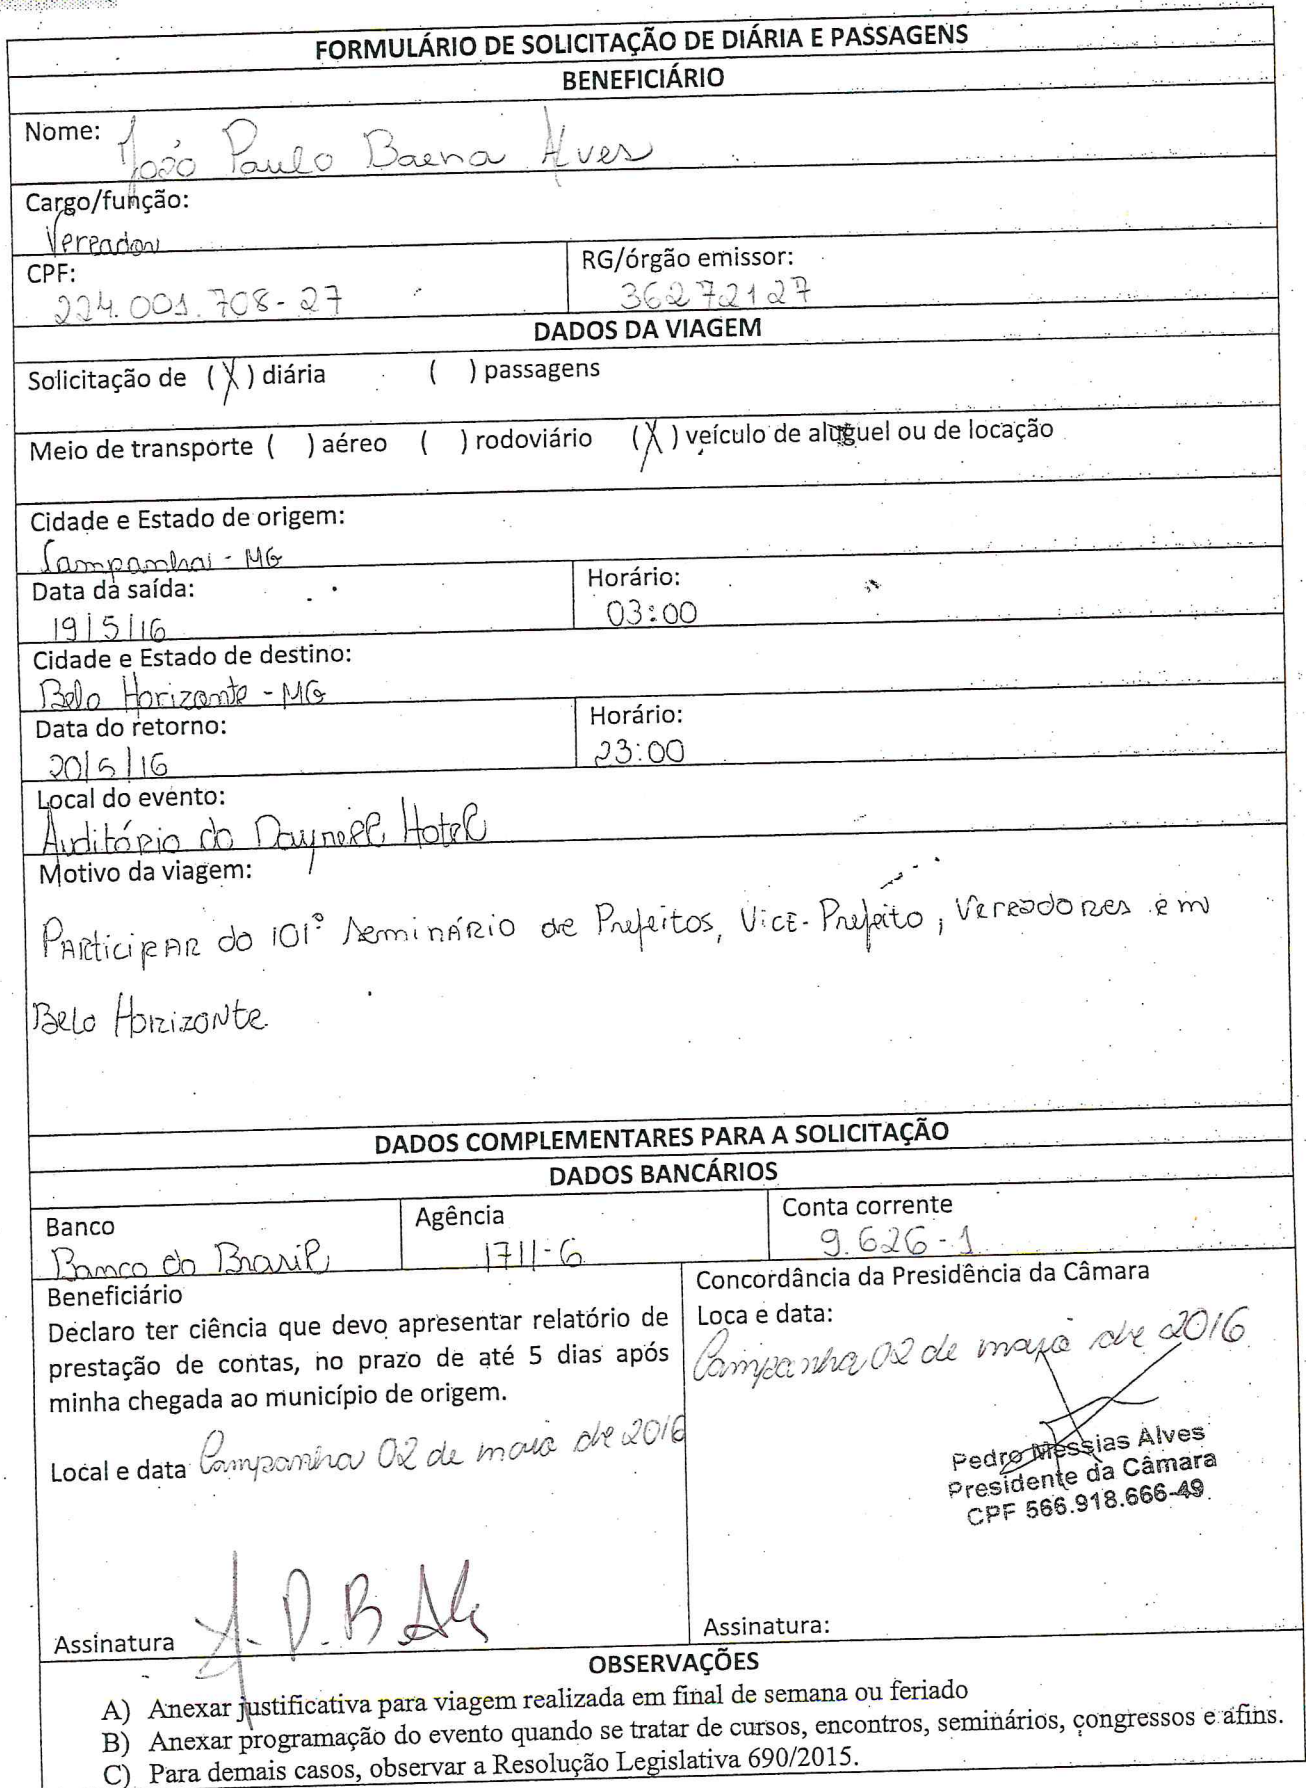 FORMULÁRIO DE SOLICITAÇÃO DE DIÁRIA E PASSAGENS
BENEFICIÁRIO
Nome: João Paulo Baena Alves
Cargo/função:
Vereador
CPF:
224.001.708-27
RG/órgão emissor:
36272127
DADOS DA VIAGEM
Solicitação de (X) diária ( ) passagens
Meio de transporte ( ) aéreo ( ) rodoviário (X) veículo de aluguel ou de locação
Cidade e Estado de origem:
Campanha - MG
Data da saída:
19/5/16
Horário:
03:00
Cidade e Estado de destino:
Belo Horizonte - MG
Data do retorno:
20/5/16
Horário:
23:00
Local do evento:
Auditório do Dayrell Hotel
Motivo da viagem:
Participar do 101° Seminário de Prefeitos, Vice-Prefeito, Vereadores em
Belo Horizonte
DADOS COMPLEMENTARES PARA A SOLICITAÇÃO
DADOS BANCÁRIOS
Banco
Banco do Brasil
Agência
1711-6
Conta corrente
9.626-1
Beneficiário
Declaro ter ciência que devo apresentar relatório de
prestação de contas, no prazo de até 5 dias após
minha chegada ao município de origem.
Local e data Campanha 02 de maio de 2016
Assinatura J. P. B. Al
Concordância da Presidência da Câmara
Loca e data:
Campanha 02 de maio de 2016
Pedro Messias Alves
Presidente da Câmara
CPF 566.918.666-49
Assinatura:
OBSERVAÇÕES
A) Anexar justificativa para viagem realizada em final de semana ou feriado
B) Anexar programação do evento quando se tratar de cursos, encontros, seminários, congressos e afins.
C) Para demais casos, observar a Resolução Legislativa 690/2015.